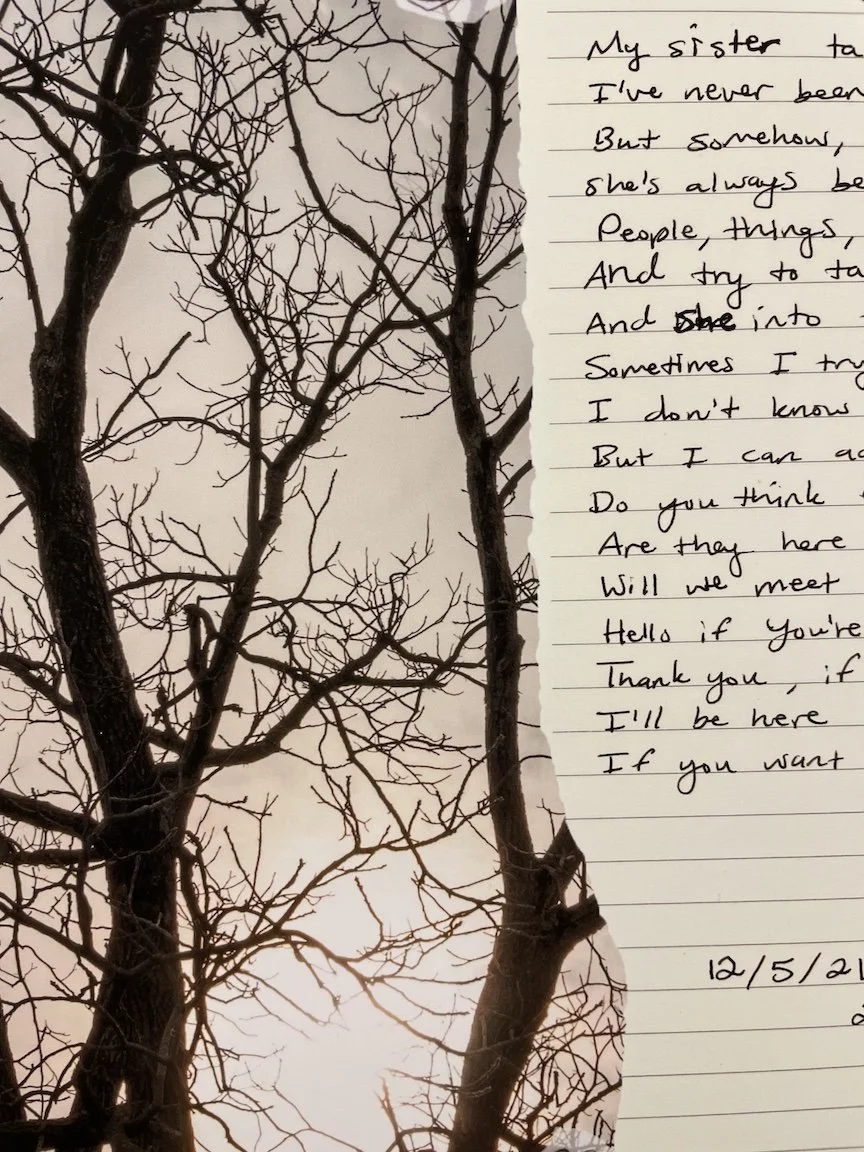 My sister ta
I've never been
But somehow,
she's always be
People, things,
And try to ta
And she into
Sometimes I try
I don't know
But I can ac
Do you think
Are they here
Will we meet
Hello if you're
Thank you, if
I'll be here
If you want
12/5/21